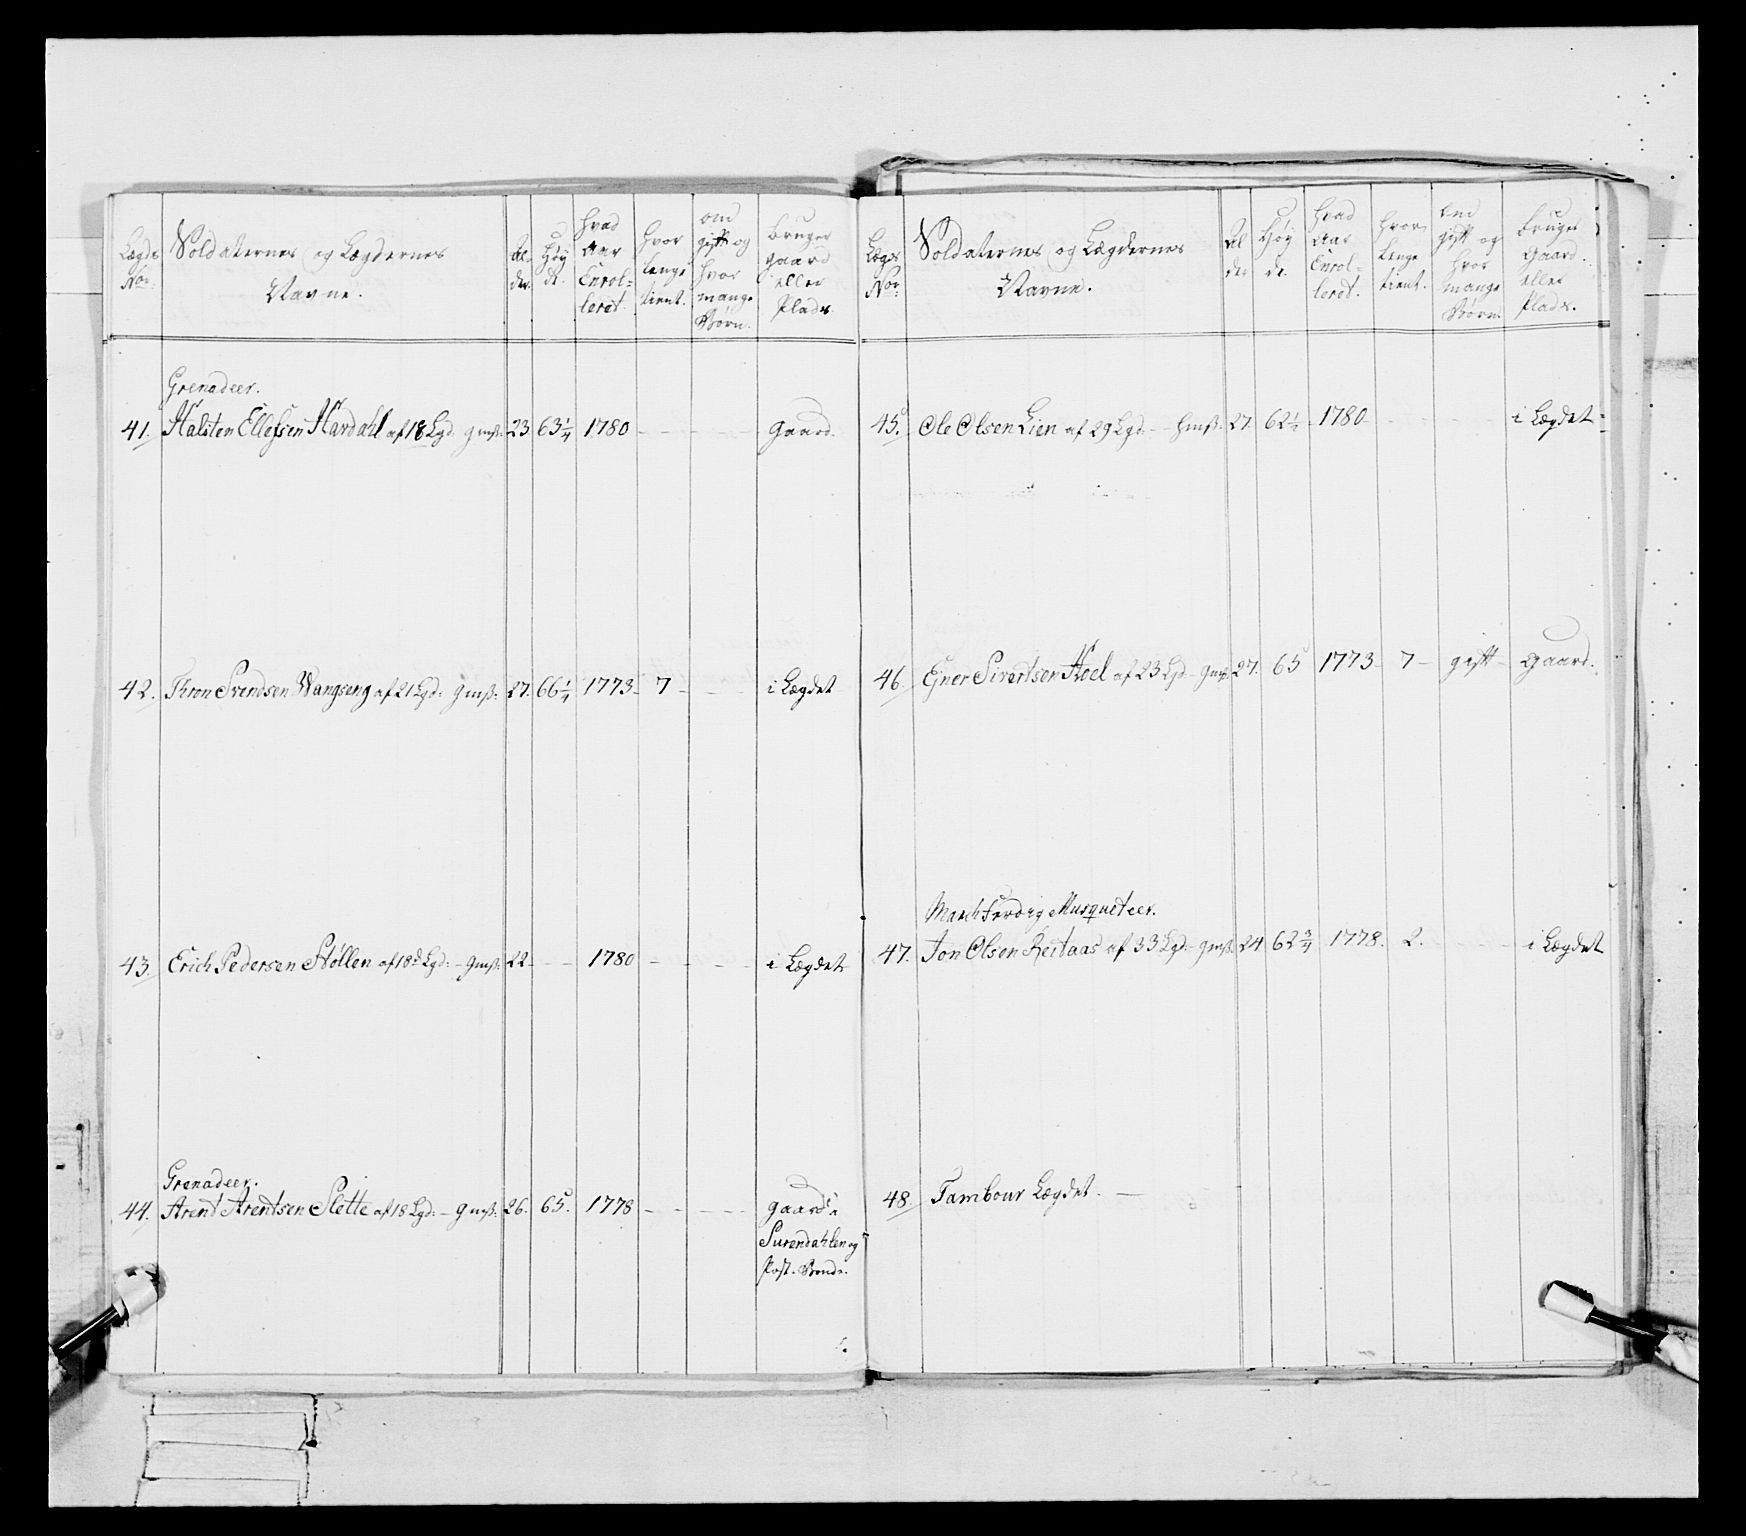 Lægds No:
Soldaternes og Lægdernes Navne.
Al der.
Høy de.
hvad Aar Enrol= leret.
hvor lenge tient.
om gift og hvor mange Børn.
bruger gaard eller Plads.
Grenadeer.
41. Halsten Ellefsen Hardahl af 18 Lgd: 23 63 1/4 1780 - - - - gaard.
42. Thron Svendsen Wangseng af 21 Lgd: 27. 66 1/4 1773 - 7 - - - i Lægdet
43. Erich Pedersen Støllen af 18d Lgd: 22 - - 1780 - - - - i Lægdet
Grenadeer.
44. Arent Arentsen Slette af 18 Lgd: 26. 65. 1778 - - - - gaard i
Surendahlen og
Post-Bonde.
Lægds No:
Soldaternes og Lægdernes Navne.
Al der
Høy de.
hvad Aar Enrol= leret.
hvor lenge tient.
om gift og hvor mange Børn.
bruger Gaard eller Plads.
45. Ole Olsen Lien af 29 Lgd: 27. 62 1/2 1780 - - - - i Lægdet
46. Ejner Sivertsen Hoel af 23 Lgd: 27. 65 1773 - 7 - gift - gaard.
March færdig Musqueteer.
47. Jon Olsen Reitaas af 33 Lgd: 24 62 3/4 1778. 2. - - - i Lægdet
48. Tambour Lægdet. -